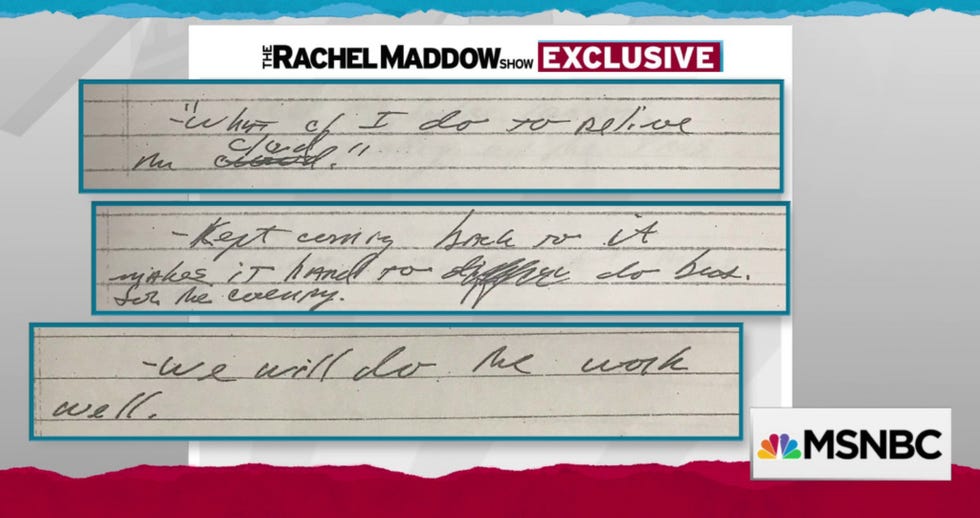 THE RACHEL MADDOW SHOW EXCLUSIVE
-"What cd I do to relive
the cloud."
cloud
-Kept coming back to it
makes it hard to do bus.
for the country.
-we will do the work
well.
MSNBC